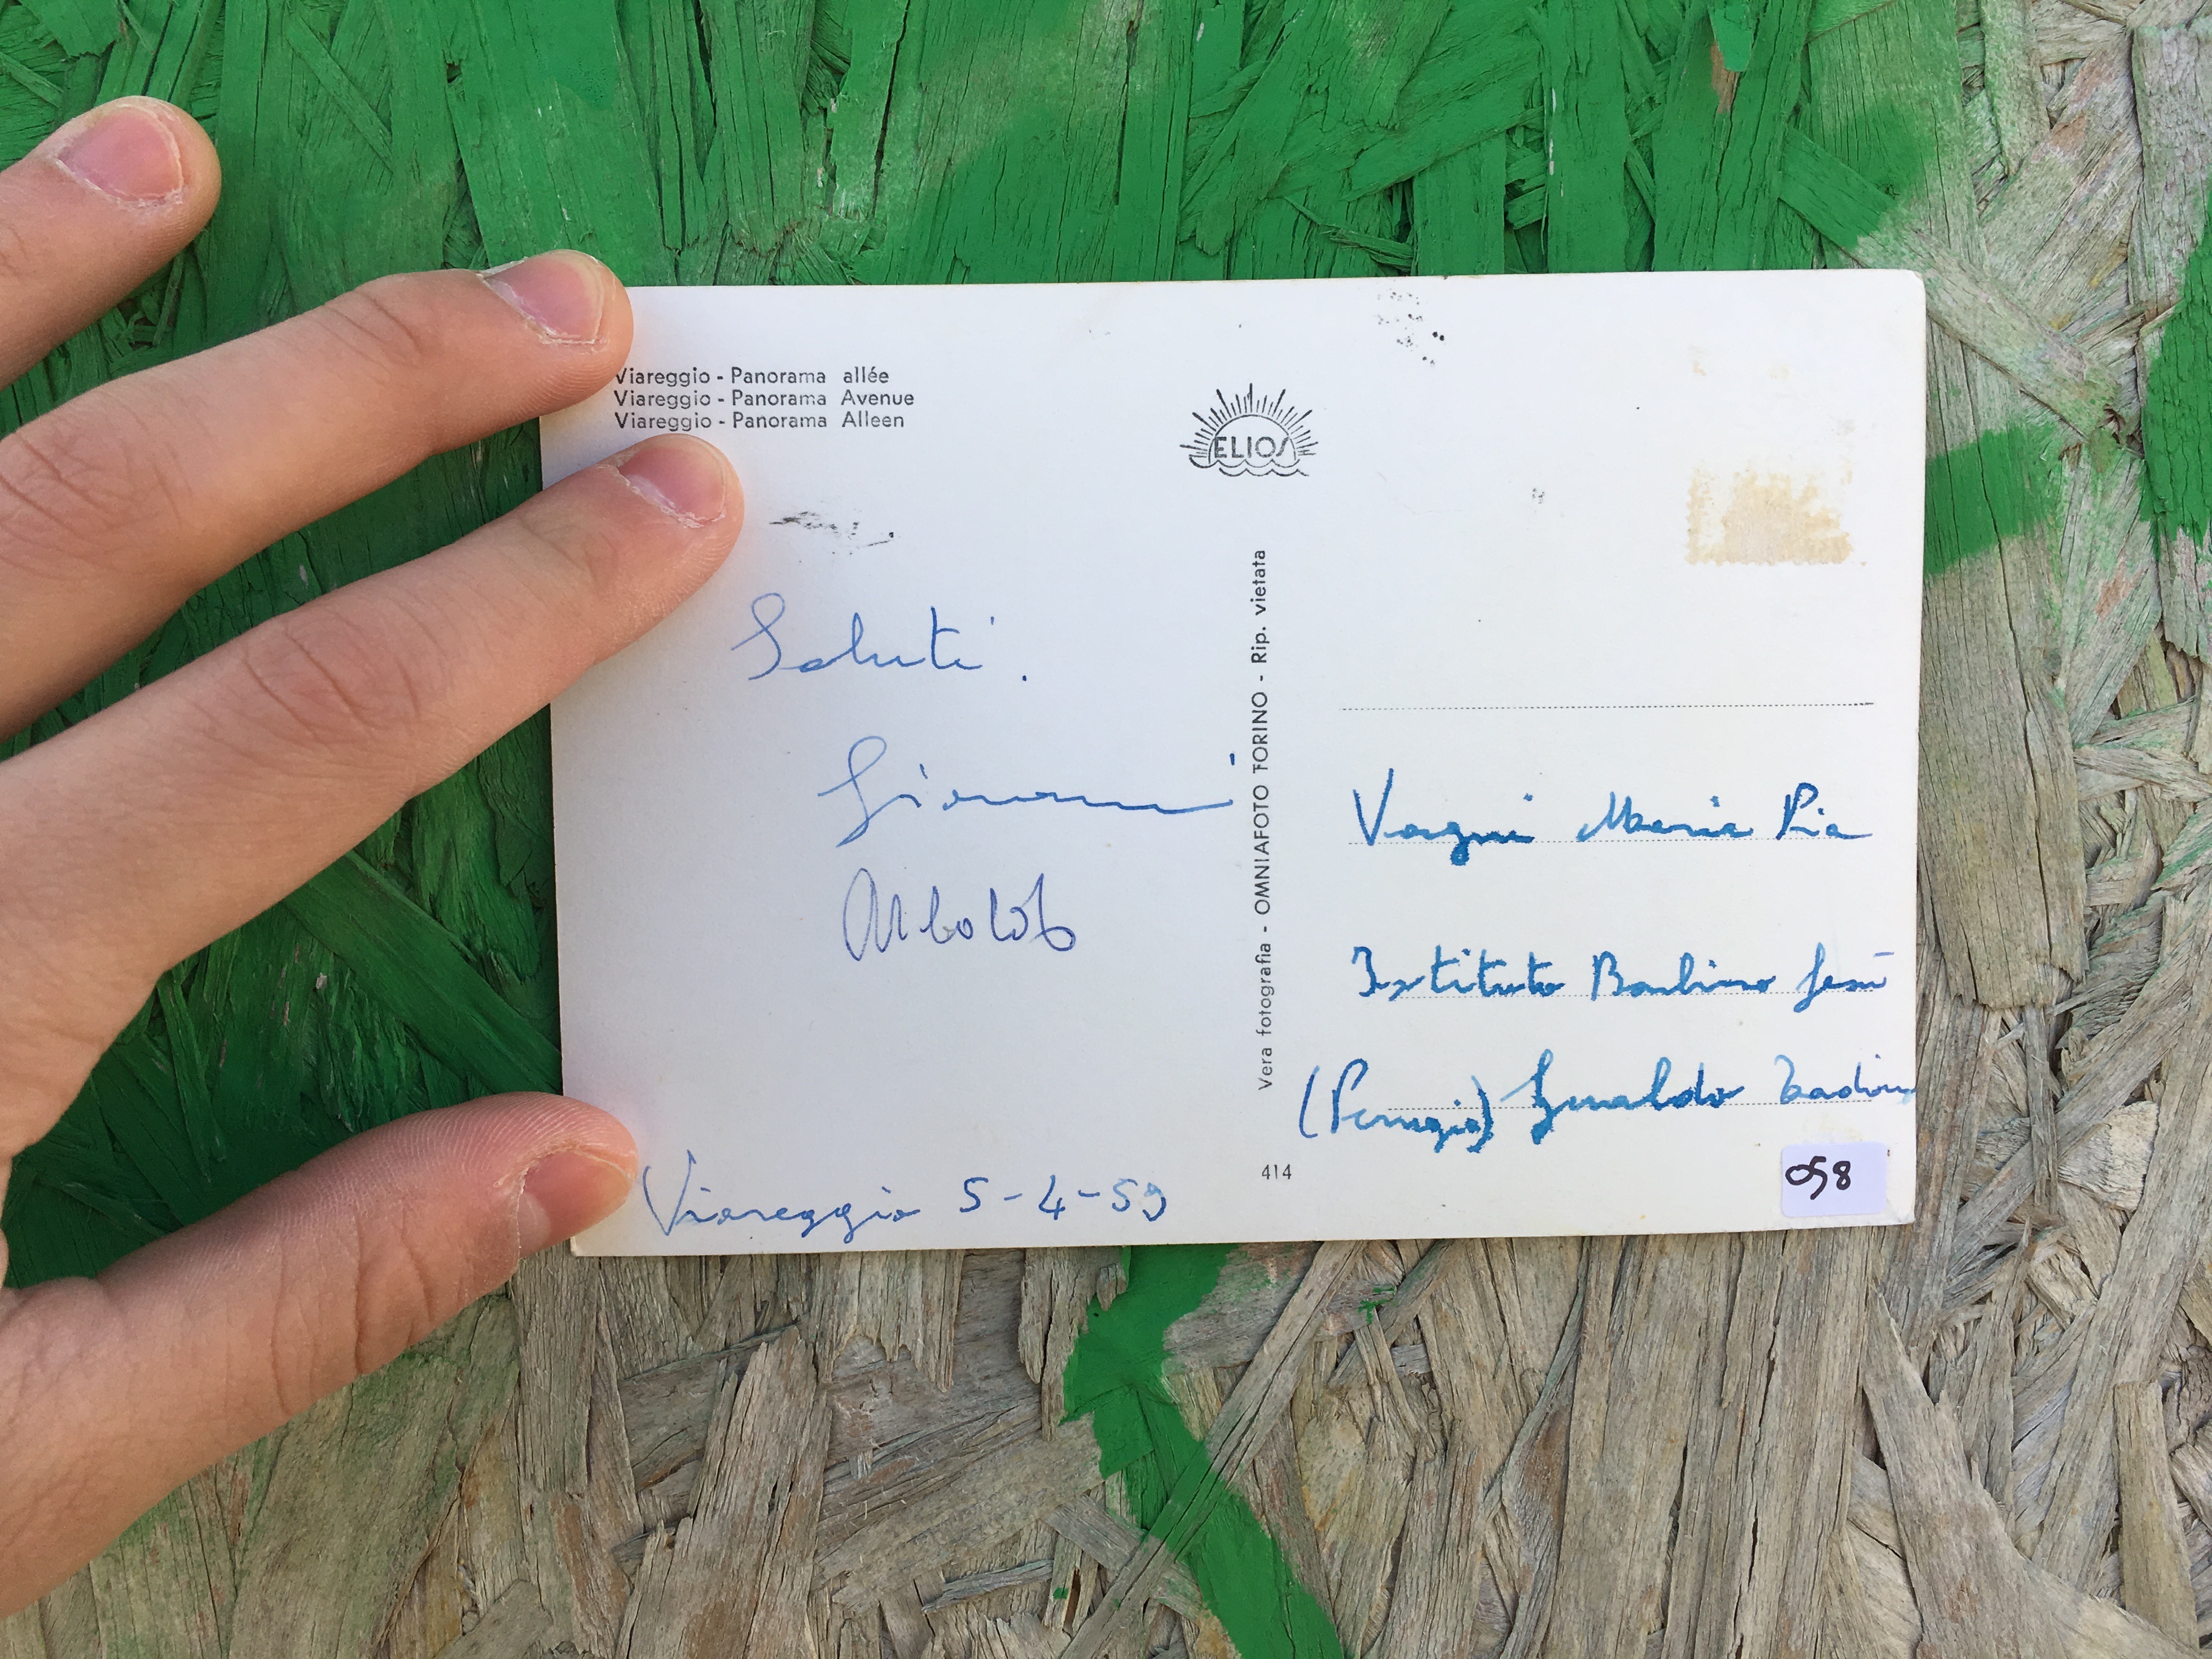 Viareggio - Panorama allée
Viareggio - Panorama Avenue
Viareggio - Panorama Alleen
ELIOS
Saluti.
Giovanni
Viareggio 5-4-59
Vera fotografia - OMNIAFOTO TORINO - Rip. vietata
414
Vagni Maria Pia
Istituto Bambino Gesù
(Perugia) Gualdo Tadino
058